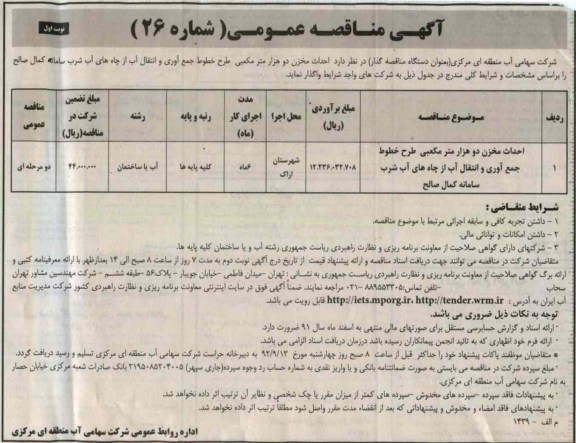 آگهی مناقصه عمومی( شماره ۲۶ )
نوبت اول
شرکت سهامی آب منطقه ای مرکزی(بعنوان دستگاه مناقصه گذار) در نظر دارد احداث مخزن دو هزار متر مکعبی طرح خطوط جمع آوری و انتقال آب از چاه های آب شرب سامانه کمال صالح
را براساس مشخصات و شرایط کلی مندرج در جدول ذیل به شرکت های واجد شرایط واگذار نماید.
ردیف موضوع مناقصه مبلغ برآوردی (ریال) محل اجرا مدت اجرای کار (ماه) رتبه و پایه رشته مبلغ تضمین شرکت در مناقصه(ریال) مناقصه عمومی
۱ احداث مخزن دو هزار متر مکعبی طرح خطوط جمع آوری و انتقال آب از چاه های آب شرب سامانه کمال صالح ۱۲،۲۳۶،۰۳۲،۷۰۸ شهرستان اراک ۶ماه کلیه پایه ها آب یا ساختمان ۴۴،۰۰۰،۰۰۰ دو مرحله ای
شرایط متقاضی :
۱ - داشتن تجربه کافی و سابقه اجرائی مرتبط با موضوع مناقصه.
۲ - داشتن امکانات و توانائی مالی.
۳ - شرکتهای دارای گواهی صلاحیت از معاونت برنامه ریزی و نظارت راهبردی ریاست جمهوری رشته آب و یا ساختمان کلیه پایه ها.
متقاضیان شرکت در مناقصه می توانند جهت دریافت اسناد مناقصه و ارائه پیشنهاد قیمت از تاریخ درج آگهی نوبت دوم به مدت ۷ روز از ساعت ۸ صبح الی ۱۴ بعدازظهر با ارائه معرفینامه کتبی و
ارائه برگ گواهی صلاحیت از معاونت برنامه ریزی و نظارت راهبردی ریاست جمهوری به نشانی : تهران -میدان فاطمی -خیابان جویبار - پلاک۵۶ -طبقه ششم - شرکت مهندسین مشاور تهران
سحاب -تلفن تماس:۸۸۹۵۵۳۳۰۵-۰۲۱ مراجعه نمایند. ضمناً آگهی فوق در سایت اینترنتی معاونت برنامه ریزی و نظارت راهبردی کشور شرکت مدیریت منابع
آب ایران به آدرس : http://iets.mporg.ir، http://tender.wrm.ir قابل رویت می باشد.
توجه به نکات ذیل ضروری می باشد.
*ارائه اسناد و گزارش حسابرسی مستقل برای صورتهای مالی منتهی به اسفند ماه سال ۹۱ ضرورت دارد.
* ارائه فرم خود اظهاری که به تائید انجمن پیمانکاران رسیده باشد درزمان دریافت اسناد الزامی می باشد.
* متقاضیان موظفند پاکات پیشنهاد خود را حداکثر قبل از ساعت ۸ صبح روز چهارشنبه مورخ ۹۲/۹/۱۳ به دبیرخانه حراست شرکت سهامی آب منطقه ای مرکزی تسلیم و رسید دریافت گردد.
* مبلغ سپرده شرکت در مناقصه می بایستی به صورت ضمانتنامه بانکی و یا واریز نقدی به شماره حساب رد وجوه سپرده(جاری سپهر) بانک صادرات شعبه مرکزی خیابان حصار
به نام شرکت سهامی آب منطقه ای مرکزی.
* به پیشنهادات فاقد سپرده -سپرده های مخدوش -سپرده های کمتر از میزان مقرر یا چک شخصی و نظایر آن ترتیب اثر داده نخواهد شد.
* به پیشنهادهای فاقد امضاء و مخدوش و پیشنهاداتی که بعد از انقضاء مدت مقرر واصل شود مطلقاً ترتیب اثر داده نخواهد شد.
م الف - ۱۴۳۹
اداره روابط عمومی شرکت سهامی آب منطقه ای مرکزی